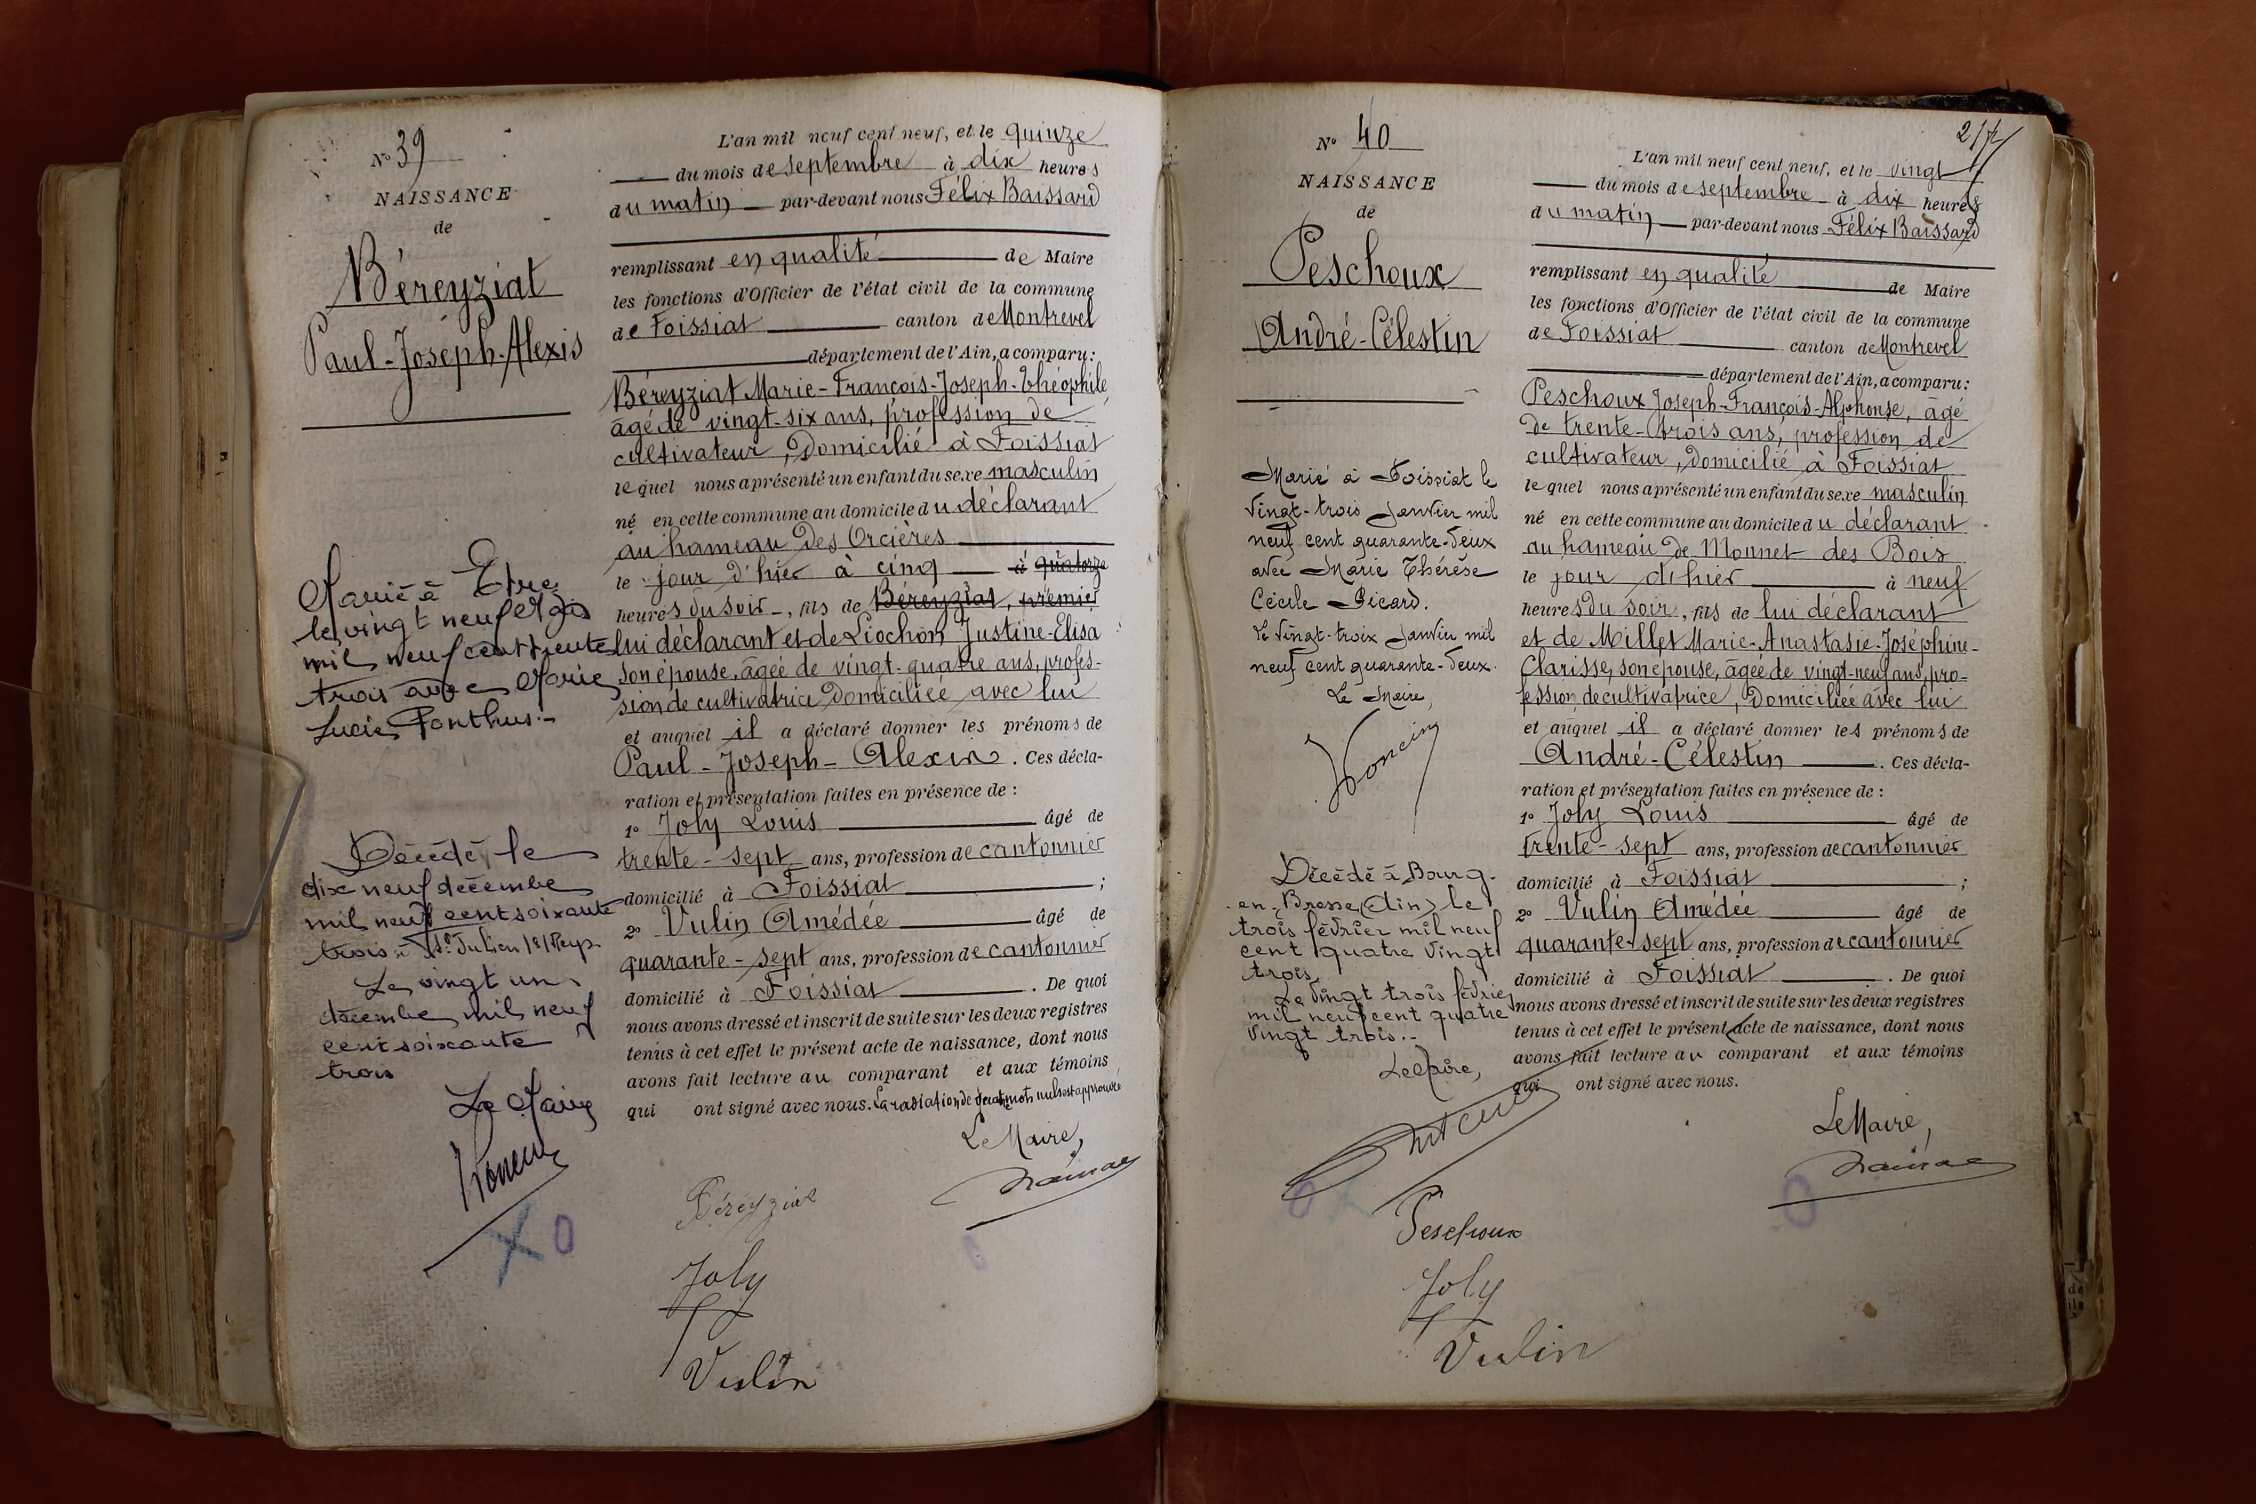 N° 39
NAISSANCE
de
Béreyziat
Paul-Joseph-Alexis
Marié à Etrez
le vingt neuf
mil neuf cent trente
trois avec Marie
Lucie Ponthus.-
Décédé le
dix neuf décembre
mil neuf cent soixante
trois à St Julien /s/ Reys.
Le vingt un
décembre mil neuf
cent soixante
trois
Le Maire
L'an mil neuf cent neuf, et le quinze
du mois de septembre à dix heures
du matin par-devant nous Félix Baissard
remplissant en qualité de Maire
les fonctions d'Officier de l'état civil de la commune
de Foissiat canton de Montrevel
département de l'Ain, a comparu:
Béreyziat Marie-François-Joseph-Théophile,
âgé de vingt-six ans, profession de
cultivateur, domicilié à Foissiat
lequel nous a présenté un enfant du sexe masculin
né en cette commune au domicile du déclarant
au hameau des Orcières
le jour d'hier à cinq à quatorze
heures du soir, fils de Béreyziat, premier
lui déclarant et de Liochon Justine-Elisa
son épouse, âgée de vingt-quatre ans, profes-
sion de cultivatrice domiciliée avec lui
et auquel il a déclaré donner les prénoms de
Paul-Joseph-Alexis. Ces décla-
ration et présentation faites en présence de :
1° Joly Louis âgé de
trente-sept ans, profession de cantonnier
domicilié à Foissiat ;
2° Vulin Amédée âgé de
quarante-sept ans, profession de cantonnier
domicilié à Foissiat . De quoi
nous avons dressé et inscrit de suite sur les deux registres
tenus à cet effet le présent acte de naissance, dont nous
avons fait lecture au comparant et aux témoins
qui ont signé avec nous. La radiation de quatre mots nuls est approuvée
Le Maire,
Béréyziat
Joly
Vulin
N° 40
NAISSANCE
de
Peschoux
André-Célestin
Marié à Foissiat le
vingt-trois Janvier mil
neuf cent quarante-deux
avec Marie Thérèse
Cécile Picard.
Le vingt-trois Janvier mil
neuf cent quarante-deux.
Le Maire,
Décédé à Bourg-
en-Bresse (Ain) le
trois février mil neuf
cent quatre vingt
trois.
Le vingt trois février
mil neuf cent quatre
vingt trois.-
Le Maire,
L'an mil neuf cent neuf, et le vingt
du mois de septembre à dix heures
du matin par-devant nous Félix Baissard
remplissant en qualité de Maire
les fonctions d'Officier de l'état civil de la commune
de Foissiat canton de Montrevel
département de l'Ain, a comparu:
Peschoux Joseph-François-Alphonse, âgé
de trente-trois ans, profession de
cultivateur, domicilié à Foissiat
lequel nous a présenté un enfant du sexe masculin
né en cette commune au domicile du déclarant
au hameau de Monnet des Bois
le jour d'hier à neuf
heures du soir, fils de lui déclarant
et de Millet Marie-Anastasie-Joséphine-
Clarisse, son épouse, âgée de vingt-neuf ans, pro-
fession de cultivatrice, domiciliée avec lui
et auquel il a déclaré donner les prénoms de
André-Célestin . Ces décla-
ration et présentation faites en présence de :
1° Joly Louis âgé de
trente-sept ans, profession de cantonnier
domicilié à Foissiat ;
2° Vulin Amédée âgé de
quarante-sept ans, profession de cantonnier
domicilié à Foissiat . De quoi
nous avons dressé et inscrit de suite sur les deux registres
tenus à cet effet le présent acte de naissance, dont nous
avons fait lecture au comparant et aux témoins
qui ont signé avec nous.
Le Maire,
Peschoux
Joly
Vulin